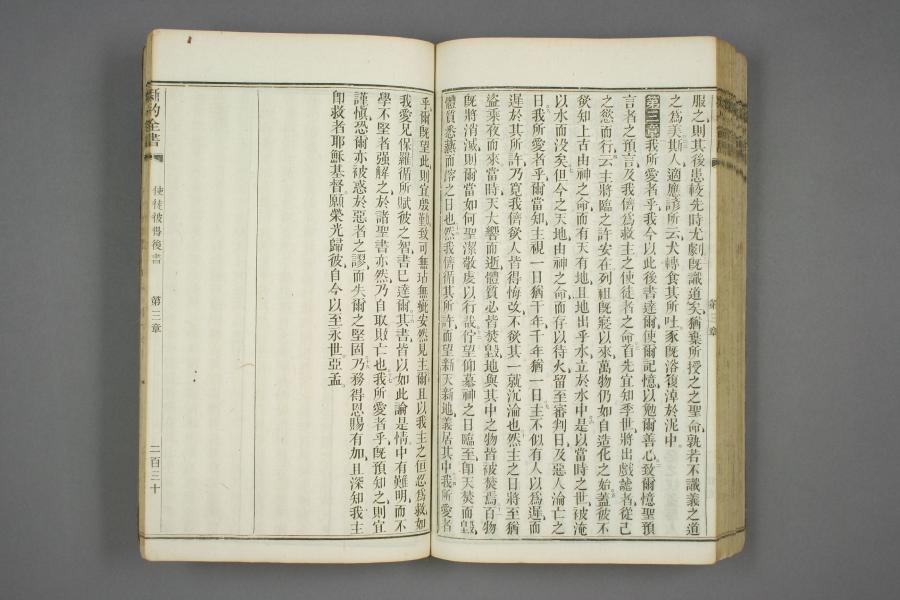 服之則其後患較先時尤劇既識道矣猶棄所授之之聖命孰若不識義之道
之為美斯人適應諺所云犬轉食其所吐豕既洛復淖於泥中
第三章我所愛者乎我今以此後書達爾使爾記憶以勉爾善心致爾憶聖預
言者之預言及我儕為救主之使徒者之命首先宜知季世將出戲謔者從己
之慾而行云主將臨之許安在列祖既寢以來萬物仍如自造化之始蓋彼不
欲知上古由神之命而有天有地且地出乎水立於水中是以當時之世被淹
以水而沒矣但今之天地由神之命而存以待火留至審判日及惡人淪亡之
日我所愛者乎爾當知主視一日猶千年千年猶一日主不似有人以為遲而
遲於其所許乃寬我儕欲人皆得悔改不欲其一就沉淪也然主之日將至猶
盜乘夜而來當時天大響而逝體質必皆焚毀地與其中之物皆被焚焉百物
既將消滅則爾當如何聖潔敬虔以行哉佇望仰慕神之日臨至即天焚而毀
體質悉燕而鎔之日也然我儕循其所許而望新天新地義居其中我所愛者
乎爾既望此則宜慇勤致可無玷無疵安然見主爾且以我主之恒忍為救如
我愛兄保羅循所賦彼之智書已達爾其書皆以如此論是情中有難明而不
學不堅者强解之於諸聖書亦然乃自取敗亡也我所愛者乎既預知之則宜
謹愼恐爾亦被惑於惡者之謬而失爾之堅固乃務得恩賜有加且深知我主
即救者耶穌基督願榮光歸彼自今以至永世亞孟
新約全書
使徒彼得後書
第三章
二百三十
第三章